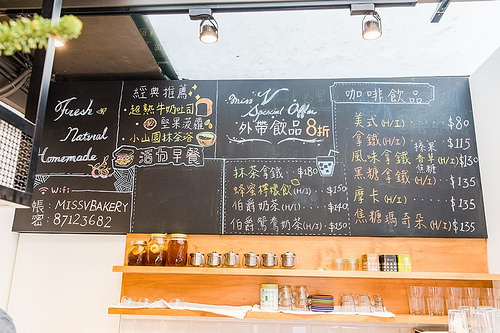 Fresh
Natural
Homemade
WiFi
帳: MISSVBAKERY
密: 87123682
經典推薦
·超熱牛奶吐司
堅果菠蘿
·小山園抹茶浴
活力早餐
Miss V
Special Offer
外帶飲品8折
抹茶拿鐵 $180
蜂蜜檸檬飲 $150
伯爵奶茶(H/I) $140
伯爵鴛鴦奶茶(H/I) $150
咖啡飲品
美式(H/I) $80
拿鐵(H/I) $115
風味拿鐵 榛果 香草 焦糖 (H/I) $130
黑糖拿鐵(H/I) $135
摩卡(H/I) $135
焦糖瑪奇朵(H/I) $135